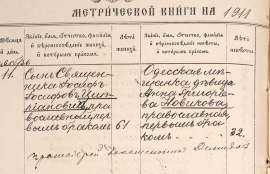 МЕТРИЧЕСКОЙ КНИГИ НА 1911
Званіе, имя, отчество, фамилія
и вѣроисповѣданіе жениха,
и которымъ бракомъ.
Лѣта
жениха.
Званіе, имя, отчество, фамилія
и вѣроисповѣданіе невѣсты,
и которымъ бракомъ.
Лѣта
невѣсты.
11.
Сынъ Священ-
ника Іосифъ
Іосифовъ
православный пер-
вымъ бракомъ
61
Одесская мѣ-
щанка дѣвица
Анна Григорье-
ва Новикова
православная,
первымъ бра-
комъ
32.